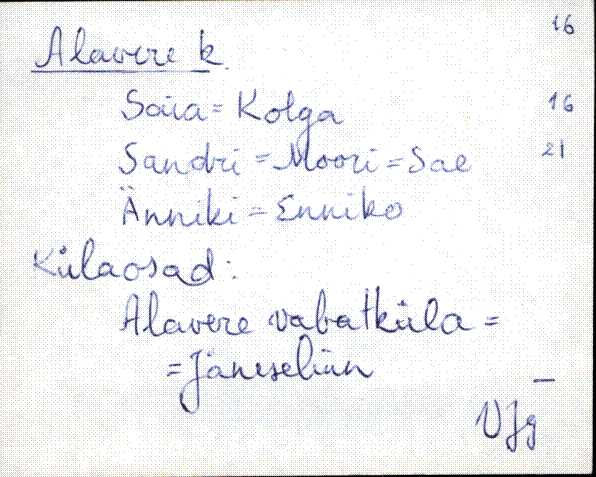 16
Alavere k.
Saia = Kolga 16
Sandri = Moori = Sae 21
Änniki = Enniko
Külaosad:
Alavere vabatküla =
= Jäneselinn
—
VJg